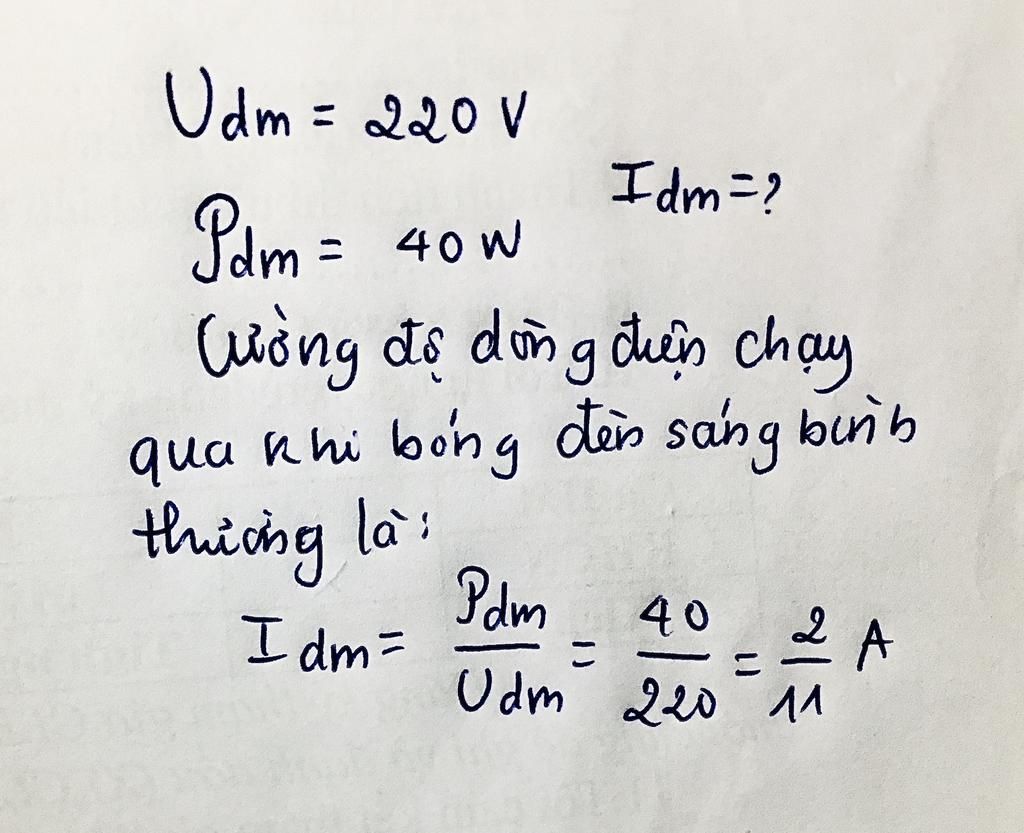 Udm = 220 V
Idm = ?
Pdm = 40 W
Cường độ dòng điện chạy
qua khi bóng đèn sáng bình
thường là:
Idm = Pdm/Udm = 40/220 = 2/11 A